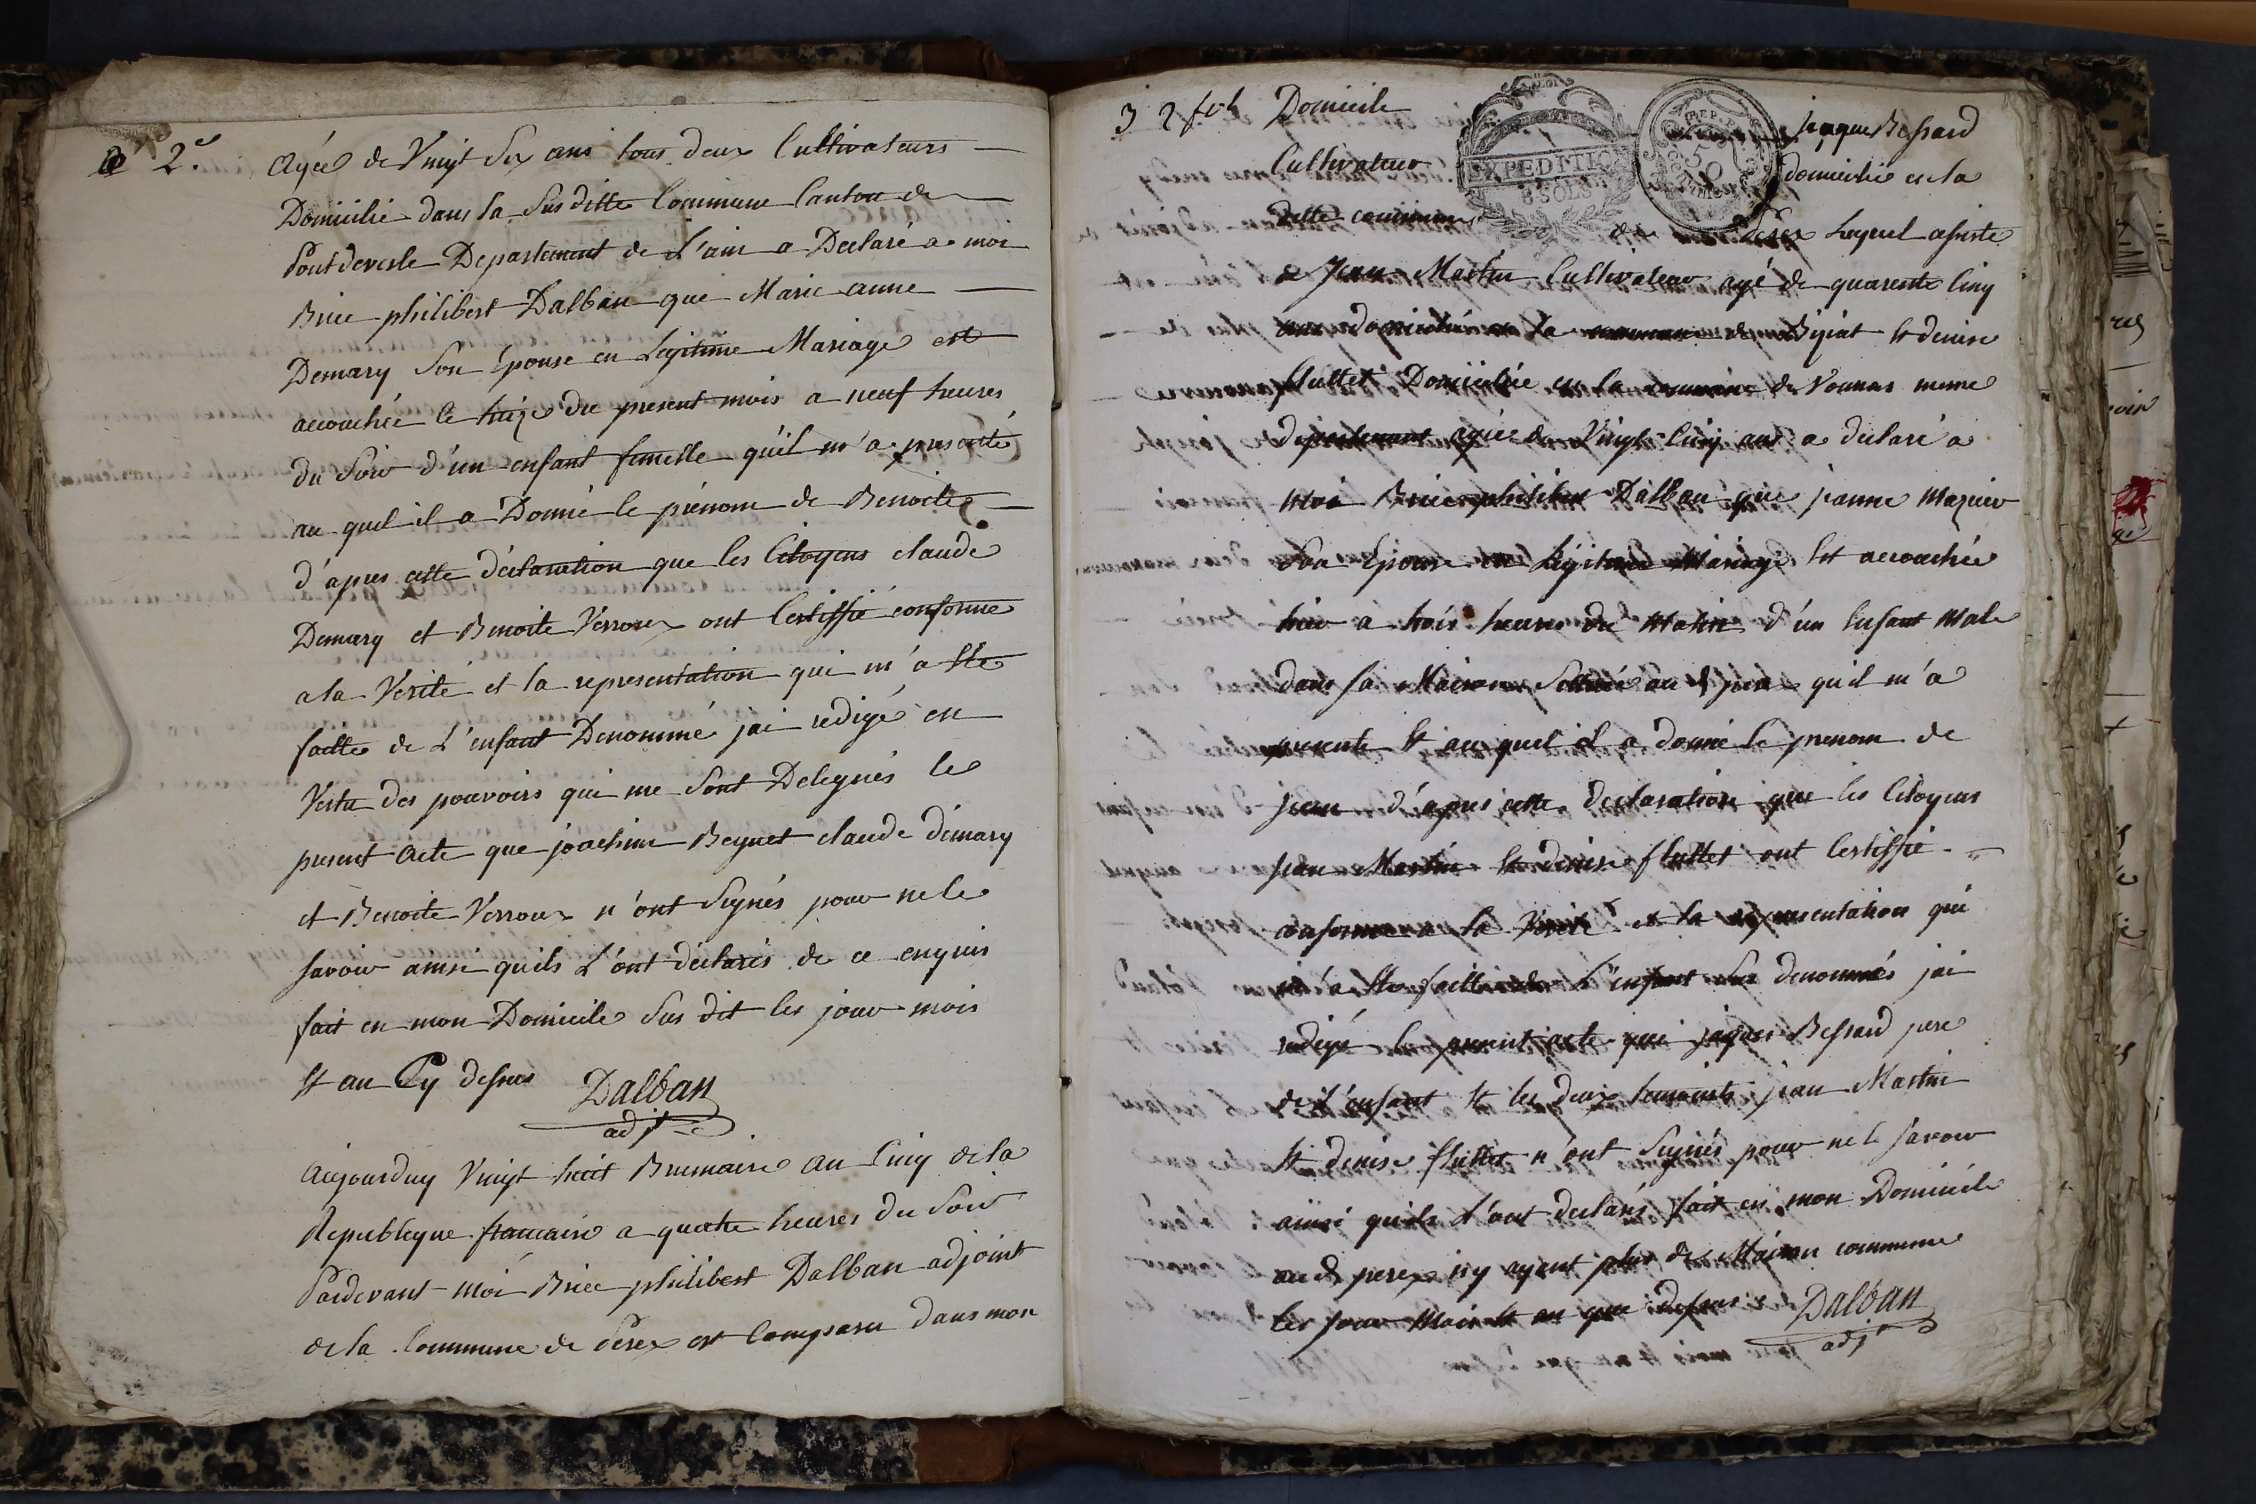 2e
agée de Vingt Six ans tous deux Cultivateurs
Domicilié dans la Sus ditte Commune Canton de
Pontdevesle Departement de L'ain a Declaré a moi
Brice philibert Dalban que Marie anne
Demary Son Epouse en Legitime Mariage est
accouchée le treize du present mois a neuf heures
du Soir d'un enfant femelle qu'il m'a presenté
au quel il a Donné le prénom de Benoite
d'apres cette déclaration que les Citoyens claude
Demary et Benoite Verroux ont Certiffié conforme
a la Verité et la representation qui m'a Ete
faitte de L'enfant Denommé jai redigé en
Vertu des pouvoirs qui me Sont Delegués le
present acte que joachim Beguet claude démary
et Benoite Verroux n'ont Signés pour ne le
savoir ainsi quils L'ont déclarés de ce enquis
fait en mon Domicile Sus dit les jour mois
Et an Cy dessus Dalban
adjt
aujourduy Vingt huit Brumaire an Cinq de la
Republique francaise a quatre heures du Soir
Pardevant moi Brice philibert Dalban adjoint
de la Commune de Perex est Comparu dans mon
3 2 Domicile jaque Bessard
Cultivateur domicilié en la
ditte commune de Perex Lequel assisté
de Jean Martin Cultivateur agé de quarente Cinq
ans domicilié en la commune de Biziat Et denise
fluttet Domiciliée en la commune de Vonnas meme
departement agée de Vingt Cinq ans a declaré a
moi Brice philibert Dalban que janne Mazuir
Son Epouse en Légitime Mariage Est accouchée
hier a trois heures du Matin d'un Enfant Male
dans sa Maison Scittuée au d perex qu'il m'a
presenté Et au quel il a donné le prenom de
jean d'apres cette declaration que les Citoyens
jean Martin Et denise fluttet ont Certiffié
conforme a la Verité et la representation qui
m'a Ete faitte de L'enfant Sus denommés jai
redigé le present acte que jaques Bessard pere
de L'enfant Et les deux temoints jean Martin
Et denise fluttet n'ont Signés pour ne le savoir
ainsi quils L'ont declarés fait en mon Domicile
au d perex ny ayant plus de Maison commune
les jour Mois Et an que dessus Dalban
adjt
EXPEDITION
8 SOLS
REP. F
50